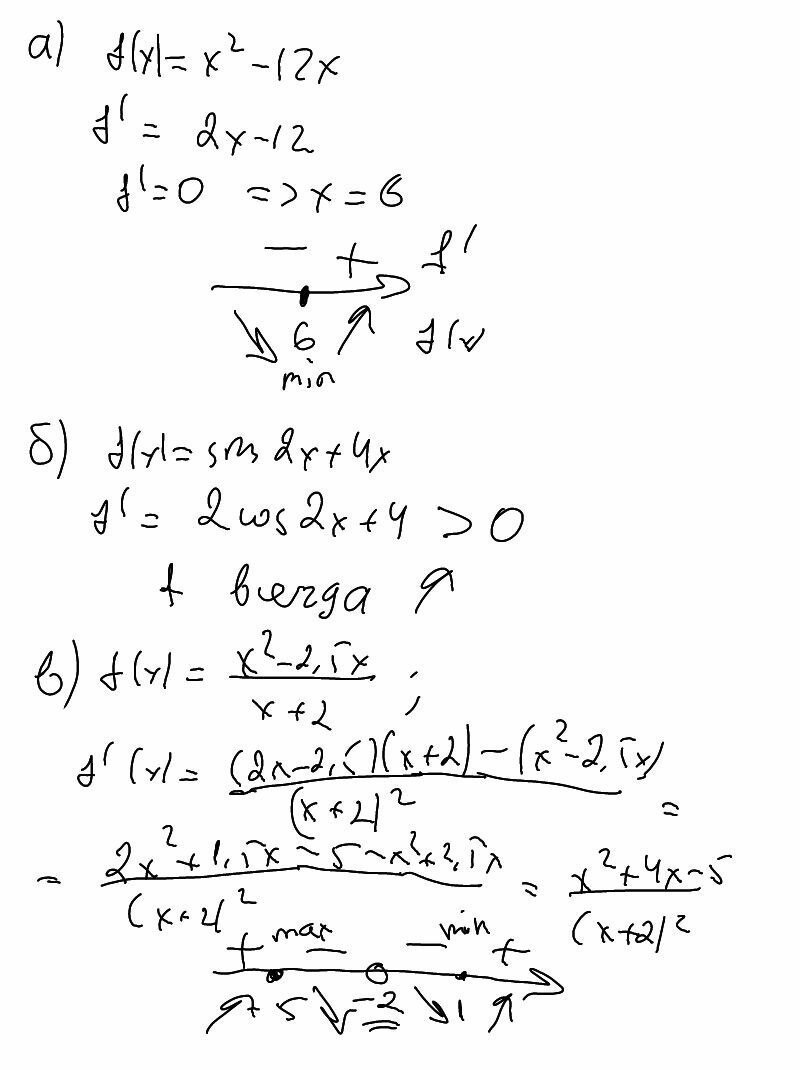 а) f(x)=x²-12x
f' = 2x-12
f'=0 => x=6
− + f'
6 f(x)
min
б) f(x)=sin 2x+4x
f' = 2cos 2x+4 > 0
f всегда ↗
в) f(x) = (x²-2,5x)/(x+2) ;
f'(x) = ((2x-2,5)(x+2)-(x²-2,5x))/(x+2)² =
= (2x²+1,5x-5-x²+2,5x)/(x+2)² = (x²+4x-5)/(x+2)²
+ max − − min +
↗ -5 ↘ -2 ↘ 1 ↗